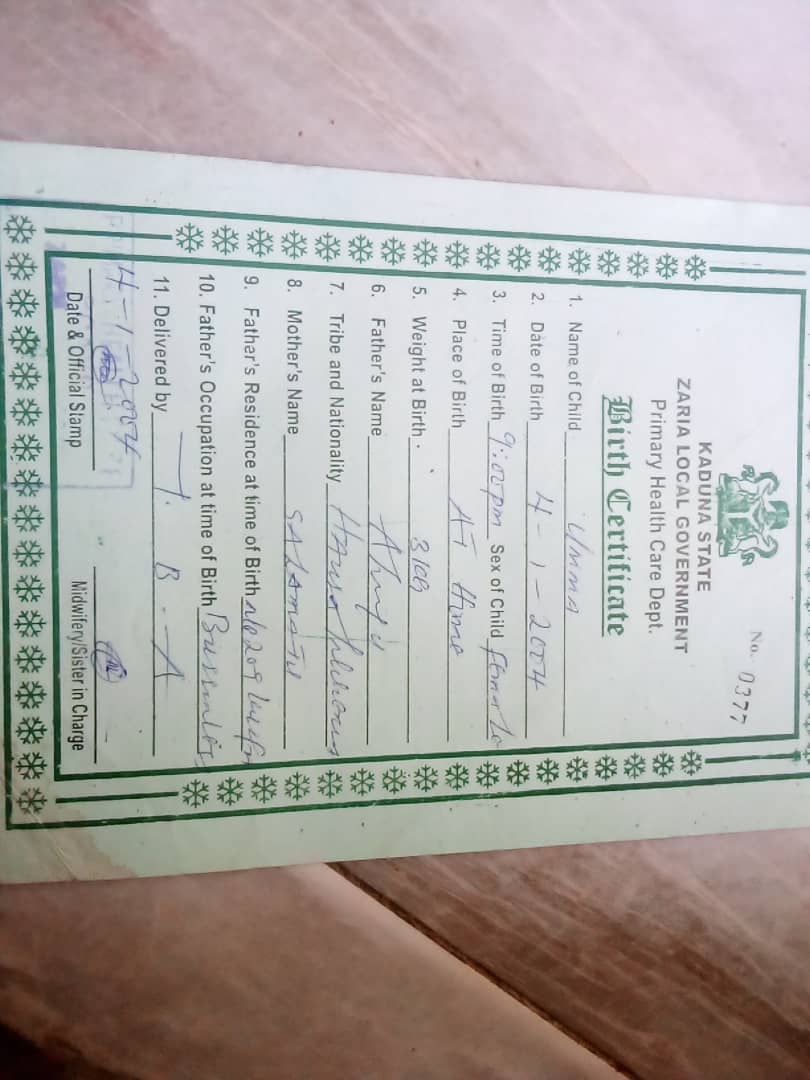 No. 0377
KADUNA STATE
ZARIA LOCAL GOVERNMENT
Primary Health Care Dept.
Birth Certificate
1. Name of Child Umma
2. Date of Birth 4-1-2004
3. Time of Birth 9:00pm Sex of Child
4. Place of Birth AT Home
5. Weight at Birth
6. Father's Name
7. Tribe and Nationality Hausa
8. Mother's Name SALAMATU
9. Father's Residence at time of Birth
10. Father's Occupation at time of Birth
11. Delivered by T. B. A
4-1-2004
Date & Official Stamp
Midwifery/Sister in Charge